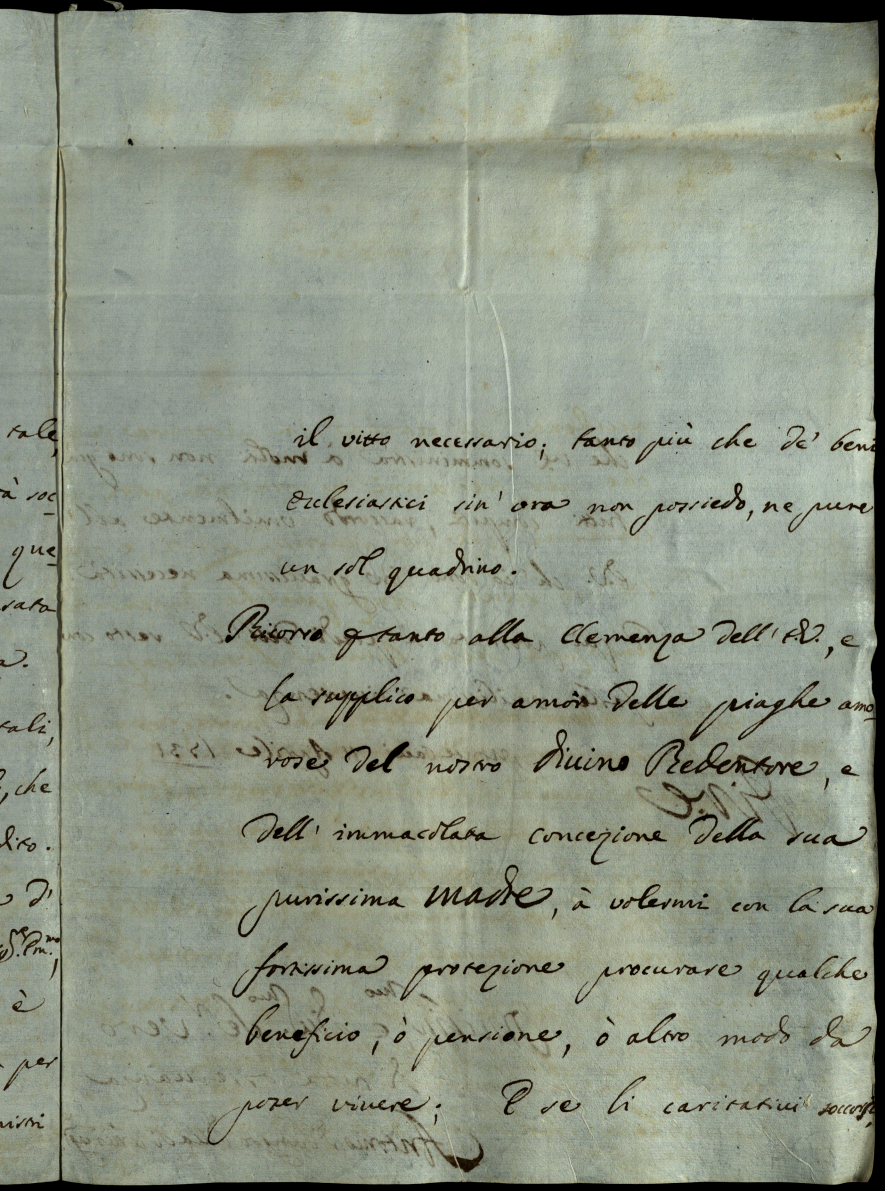 tale,
à soc-
que-
sata
a.
tali,
, che
dito.
d'
è
per
nistri
il vitto necessario; tanto più che de' beni
Eclesiastici sin' ora non possiedo, ne pure
un sol quadrino.
Ricorro tanto alla Clemenza dell' EV., e
la supplico per amor delle piaghe amo-
rose del nostro divino Redentore, e
dell' immacolata concezione della sua
purissima Madre, à volermi con la sua
fortissima protezione procurare qualche
beneficio, ò pensione, ò altro modo da
poter vivere; E se li caritativi soccorsi,